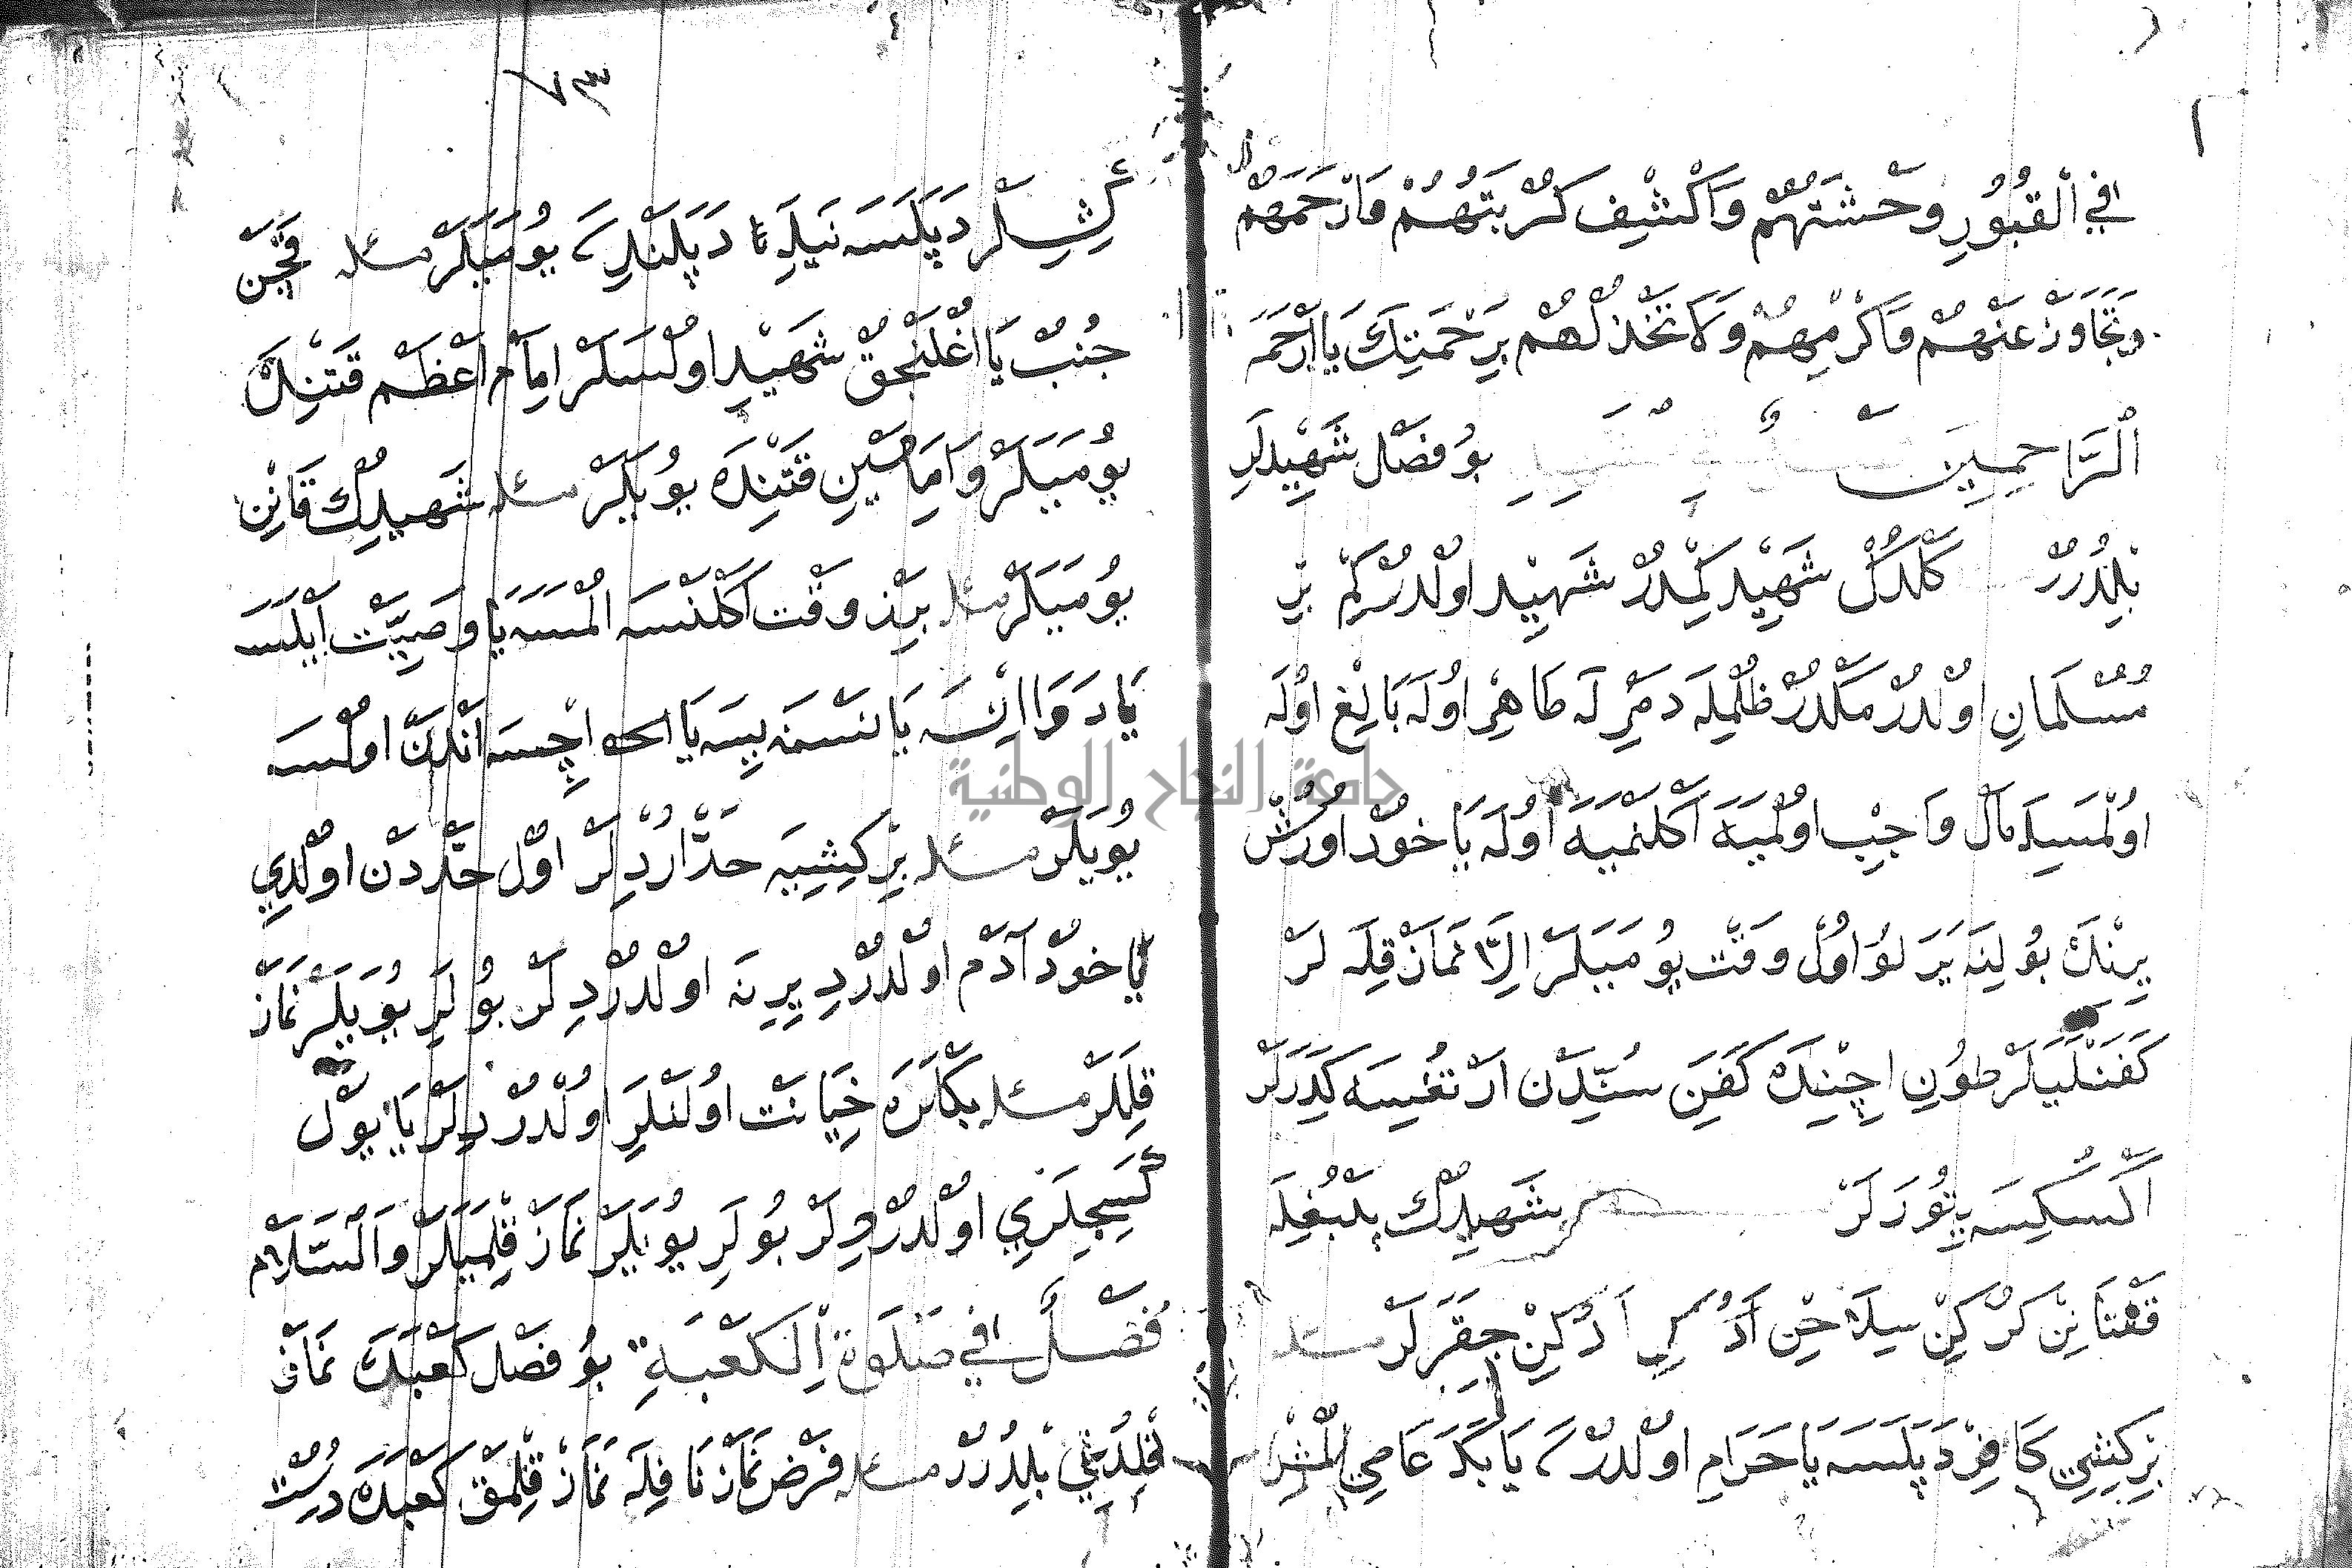 في الْقُبُورِ وَحْشَتَهُمْ وَاكْشِفْ كُرْبَتَهُمْ وَارْحَمْهُمْ
وَتَجَاوَزْ عَنْهُمْ وَاكْرِمْهُمْ وَلَا تَخْذُلْهُمْ بِرَحْمَتِكَ يَا اَرْحَمَ
الرَّاحِمِينَ بُو فَصْل شَهِيدلَرِ
بِلْدُرُرْ شَهِيد كِمْدُرْ شَهِيد اولْدُرْ كِمْ بِر
مُسْلمَان اولْدُرْمَكْدُرْ ظُلْمِلَه دَمِرْ لَه طَاهِر اوُلَه بَالِغ اوُلَه
اوُلْمَسِيلَه مَال وَاجِب اوُلْمَيَه اَكْلَنْمَيَه اوُلَه يَا خود اوُرُش
يِرِنْدَه بُولِنَه يَرَلُو اوُل وَقْت يُومَيَلَرْ اِلَّا نَمَازْ قِلَه لَرْ
كَفَنْلَمَيَلَرْ طُونِ اِچِنْدَه كَفَن سُنَّتِدَن اَرْتُغِيسَه كِدَرَلَرْ
اَكْسُكِيسَه يتُورَلَرْ شَهِيدِك
سِلَاحِن جِقَرَلَرْ مسئله
بِرْكِشِي كَافِرْ دَپَلَسَه يَا حَرَامِ اولْدُرْ يَا عَاصِي
٧٣
كِشِلَر دَپَلَسَه يُومَيَلَرْ مسئله قَچَن
جُنُبْ يَا اغْلَنْجُقْ شَهِيد اولْسَلَرْ اِمَامِ اَعْظَم قَتِنْدَه
يُومَيَلَرْ وَ اِمَامَيْنِ قَتِنْدَه يُويَلَرْ مسئله شَهِيدِك قَانِن
يُومَيَلَرْ مسئله بِرَز وَقْت اَكْلَنْسَه الْمَسَه يَا وَصِيَّت اَيْلَسَه
يَا دَوَا اِتْسَه يَا نَسْنَه يِيسَه يَا اِچْسَه اَنْدَنْ اولْسَه
يُويَلَرْ مسئله بِرْ كِشِيَه حَدّ اُرْدِلَر اوّل حَدّدن اولْدِي
يَا خود آدَم اولْدُرْدِ يِرِنَه اولْدُرْدِلَرْ بُولَرِ يُويَلَرْ نَمَازْ
قِلَلَرْ مسئله بَكْلَرَه خِيَانَت اوُلَنْلَرِ اولْدُرْدِلَر يَا يول
كَسِجِلَرِي اولْدُرْدِلَرْ بُولَرِ يُويَلَرْ نَمَازْ قِلْمَيَلَرْ وَالسَّلَام
فَصْل فِي صَلَوةِ الْكَعْبَةِ بُو فَصْل كَعْبَدَه نَمَاز
قِلْدُغِنِي بِلْدُرُرْ مسئله فَرْض نَمَاز نَافِلَه نَمَازْ قِلْمَق كَعْبَدَه دُرُسْت